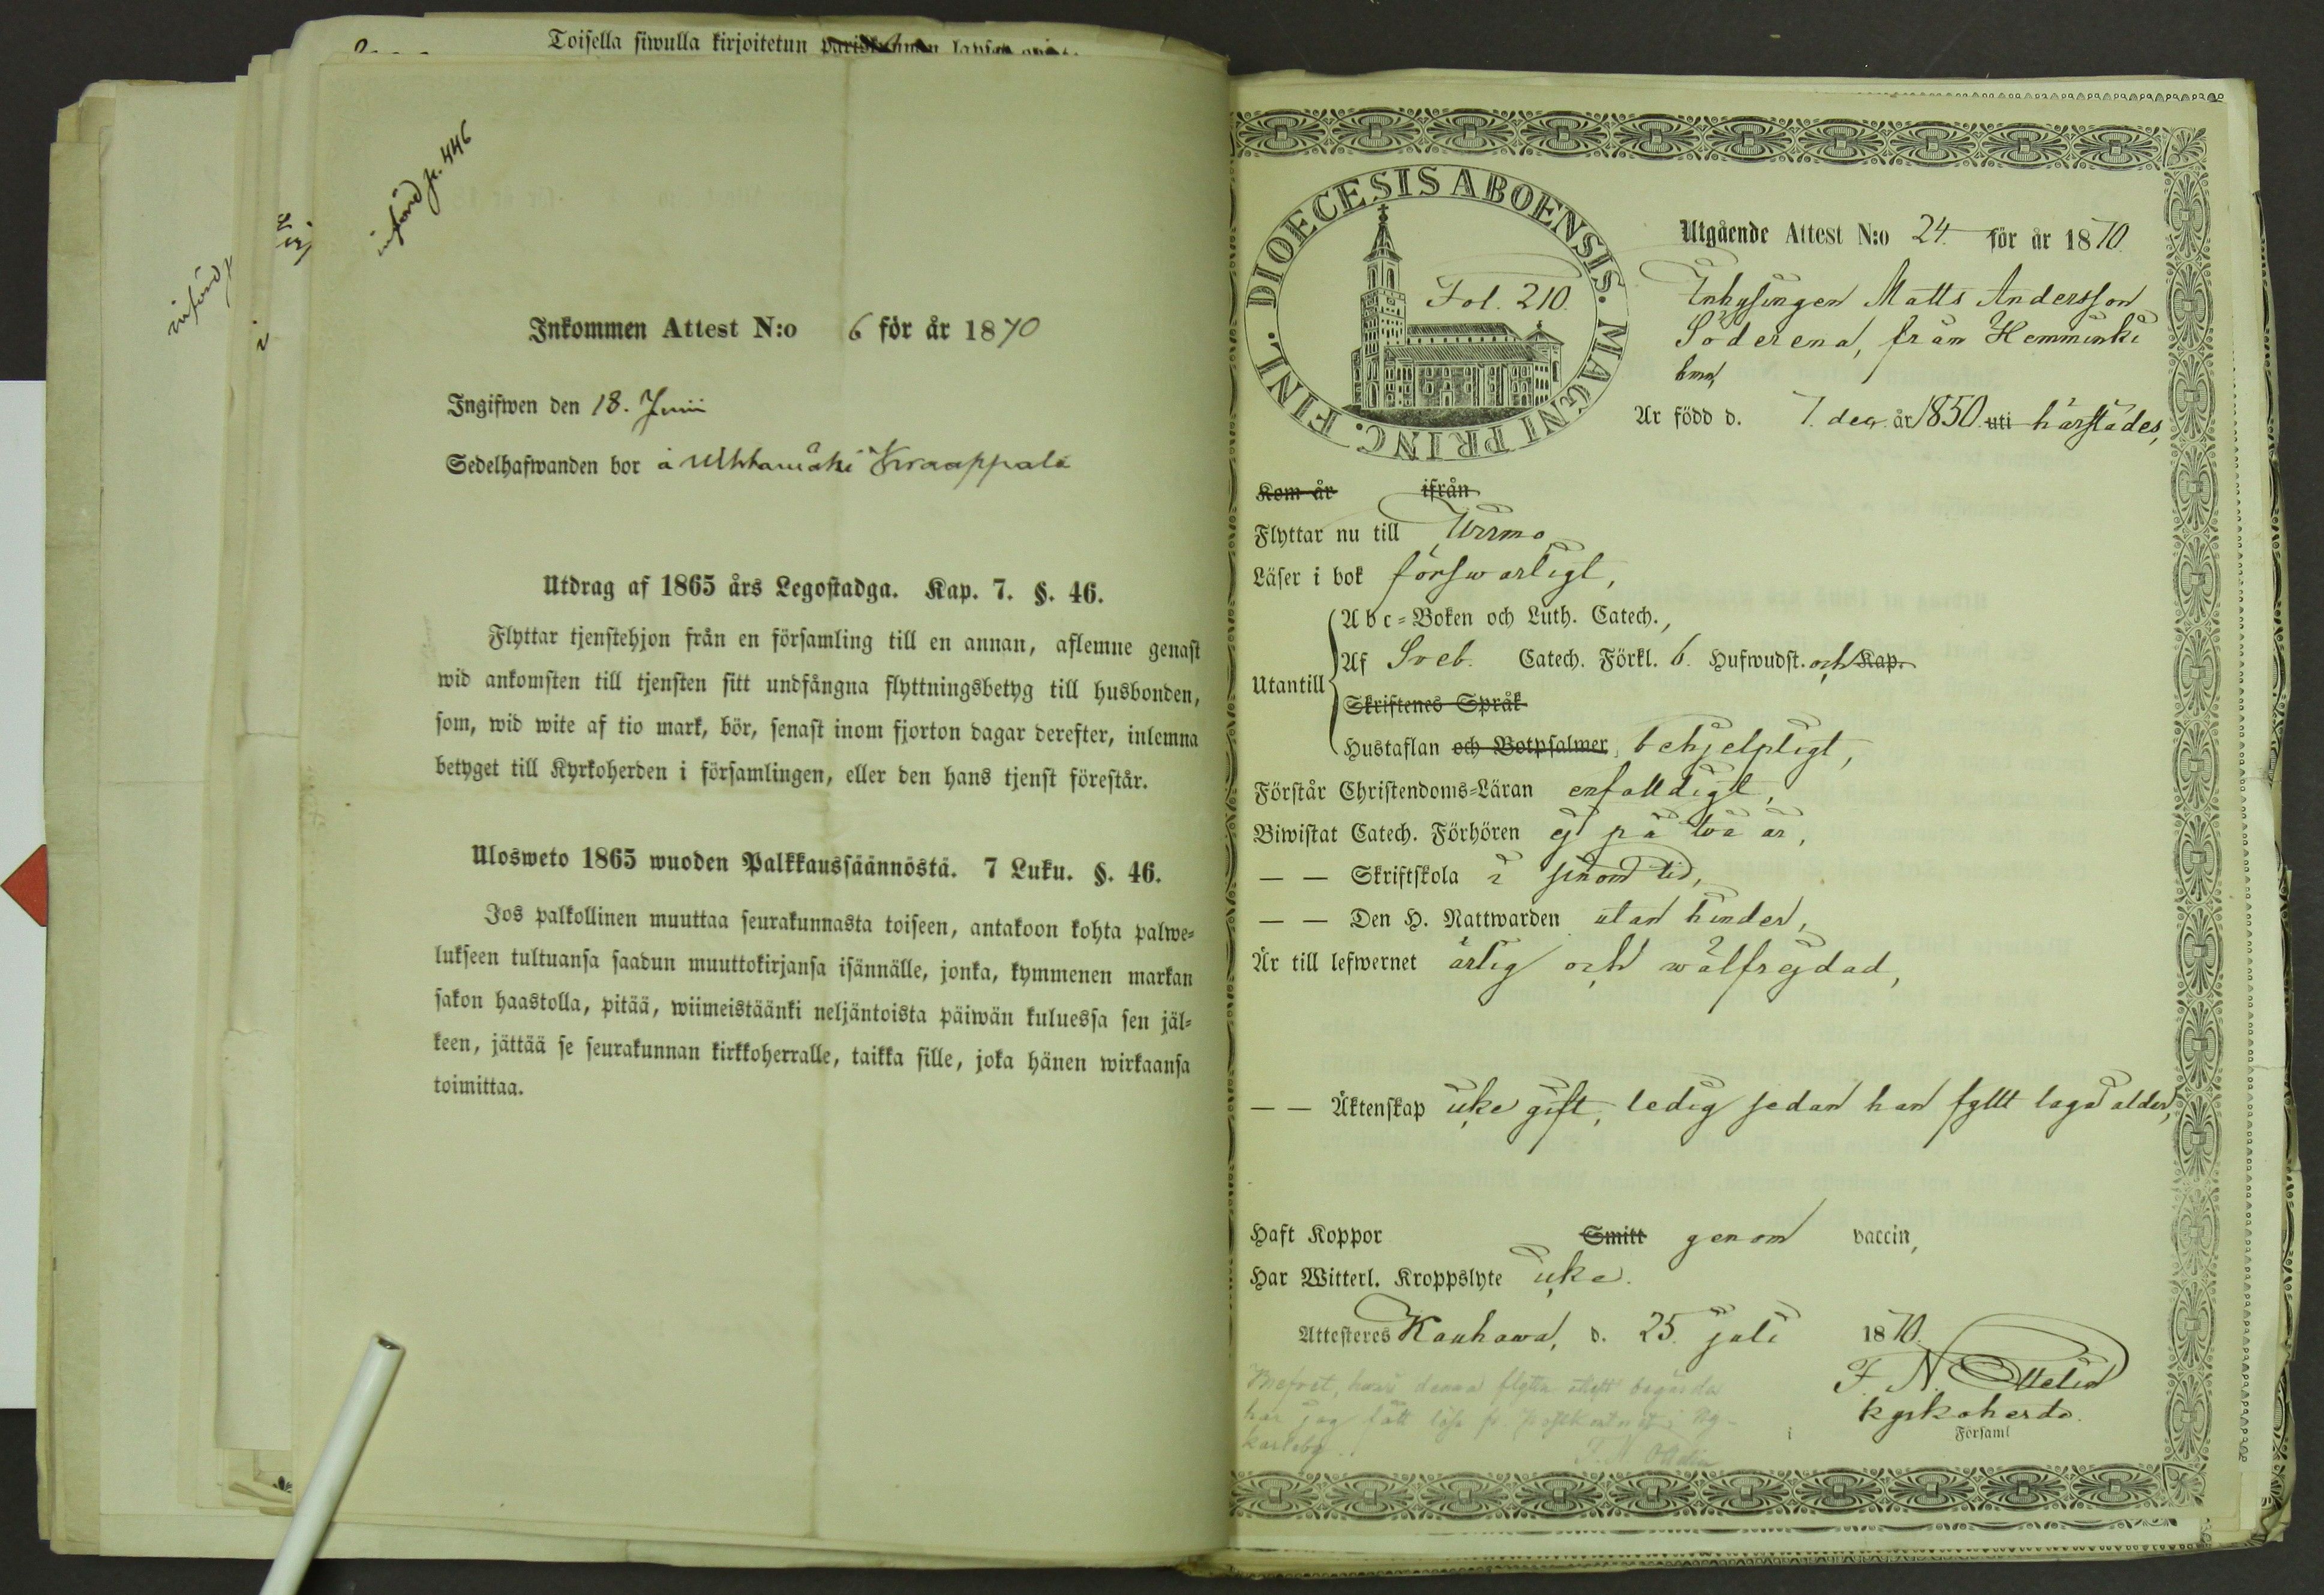 Toisella siwulla kirjoitetun pariskunnan
införd p. 446
Inkommen Attest N:o 6 för år 1870
Ingifwen den 18. Junii
Sedelhafwanden bor å Ukkamäki Knaappala
Utdrag af 1865 års Legostadga. Kap. 7. §. 46.
Flyttar tjenstehjon från en församling till en annan, aflemne genast
wid ankomsten till tjensten sitt undfångna flyttningsbetyg till husbonden,
som, wid wite af tio mark, bör, senast inom fjorton dagar derefter, inlemna
betyget till Kyrkoherden i församlingen, eller den hans tjenst förestår.
Ulosweto 1865 wuoden Palkkaussäännöstä. 7 Luku. §. 46.
Jos palkollinen muuttaa seurakunnasta toiseen, antakoon kohta palwe-
lukseen tultuansa saadun muuttokirjansa isännälle, jonka, kymmenen markan
sakon haastolla, pitää, wiimeistäänki neljäntoista päiwän kuluessa sen jäl-
keen, jättää se seurakunnan kirkkoherralle, taikka sille, joka hänen wirkaansa
toimittaa.
DIOECESIS ABOENSIS. MAGNI PRINC. FINL.
Fol. 210.
Utgående Attest N:o 24. för år 1870.
Inhysingen Matts Andersson
Söderena, från Hemminki
Är född d. 7. dec. år 1850. uti härstädes,
Kom år ifrån
Flyttar nu till Wirmo
Läser i bok förswarligt,
Utantill
Abc-Boken och Luth. Catech.,
Af Sveb. Catech. Förkl. 6. Hufwudst. och Kap.
Skriftenes Språk
Hustaflan och Botpsalmer, behjelpligt,
Förstår Christendoms-Läran enfalldigt,
Biwistat Catech. Förhören ej på två år,
— — Skriftskola i sinom tid,
— — Den H. Nattwarden utan hinder,
Är till lefwernet ärlig och wälfrejdad,
— — Äktenskap icke gift, ledig sedan han fyllt laga ålder,
Haft Koppor Smitt genom vaccin,
Har Witterl. Kroppslyte icke.
Attesteres Kauhawa, d. 25. juli 1870.
F. N. Ottelin
kyrkoherde.
i Församl
Brefvet, hvari denna flyttn attest begärdes
har jag fått lösa fr. postkontoret i Ny-
karleby. F. N. Ottelin